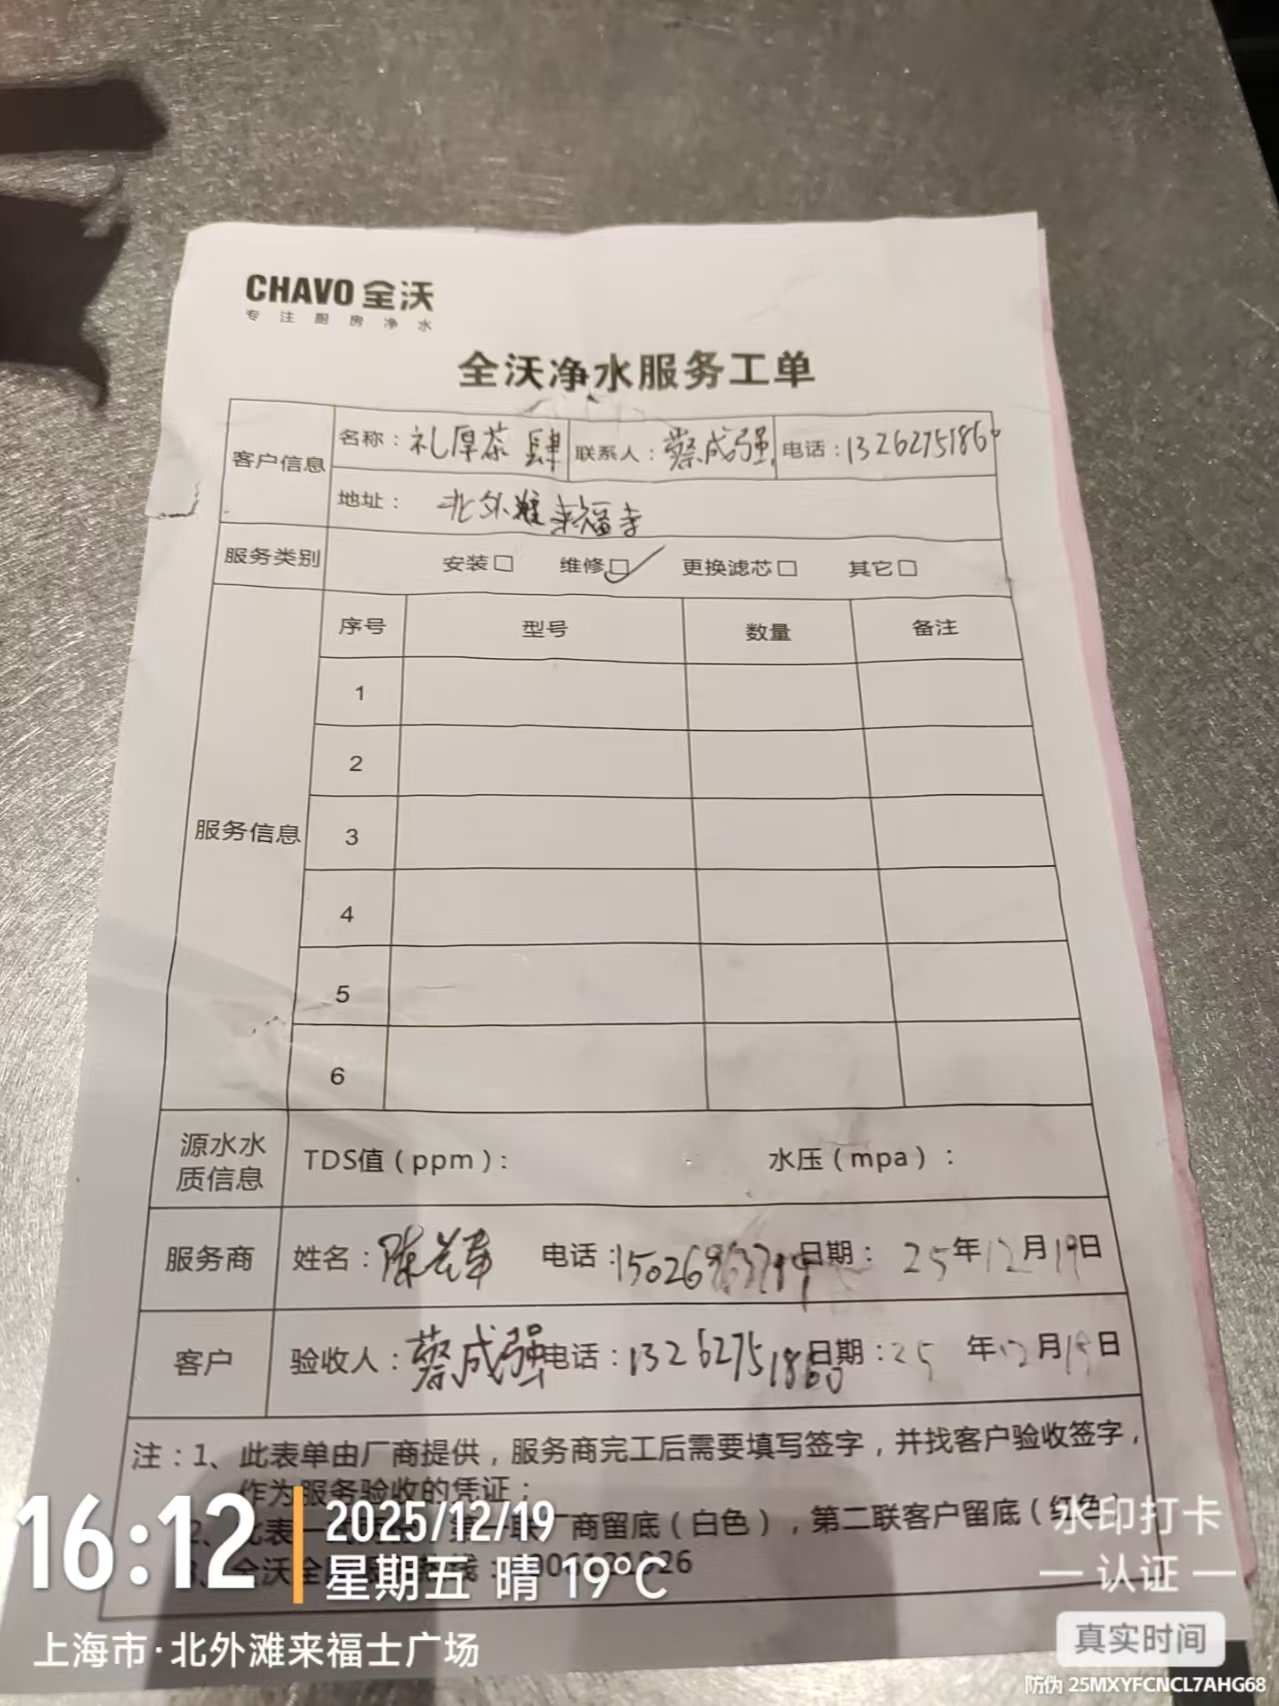 CHAVO 全沃
专注厨房净水
全沃净水服务工单
客户信息 名称：礼厚茶 肆 联系人：蔡成强 电话：13262751860
地址： 北外滩来福士
服务类别 安装□ 维修□✓ 更换滤芯□ 其它□
服务信息 序号 型号 数量 备注
1
2
3
4
5
6
源水水质信息 TDS值（ppm）： 水压（mpa）：
服务商 姓名：陈 电话：15026 日期： 25年12月19日
客户 验收人：蔡成强 电话：13262751860 日期：25 年12月19日
注：1、此表单由厂商提供，服务商完工后需要填写签字，并找客户验收签字，
作为服务验收的凭证；
2、此表一 厂商留底（白色），第二联客户留底（红色）
3、全沃全
16:12
2025/12/19
星期五 晴 19°C
上海市·北外滩来福士广场
水印打卡
认证
真实时间
防伪 25MXYFCNCL7AHG68